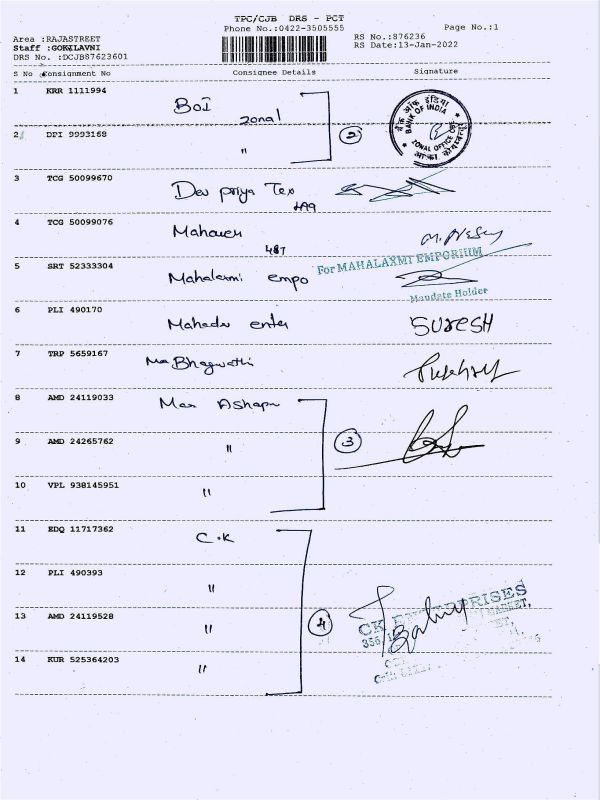 TPC/CJB DRS - PCT
Phone No.:0422-3505555
Page No.:1
Area :RAJASTREET
Staff :GOKILAVNI
DRS No. :DCJB87623601
RS No.:876236
RS Date:13-Jan-2022
S No Consignment No Consignee Details Signature
1 KRR 1111994 BOI zonal
बैंक ऑफ इंडिया
BANK OF INDIA
ZONAL OFFICE CBE
2 DPI 9993168 " 2
3 TCG 50099670 Dev priya Tex
4 TCG 50099076 Mahaveer
487
5 SRT 52333304 Mahalaxmi empo
For MAHALAXMI EMPORIUM
Mandate Holder
6 PLI 490170 Mahadev enter SURESH
7 TRP 5659167 Maa Bhagwathi
8 AMD 24119033 Maa Ashapu
9 AMD 24265762 " 3
10 VPL 938145951 "
11 EDQ 11717362 C.K
12 PLI 490393 "
13 AMD 24119528 " 4
CK ENTERPRISES
14 KUR 525364203 "